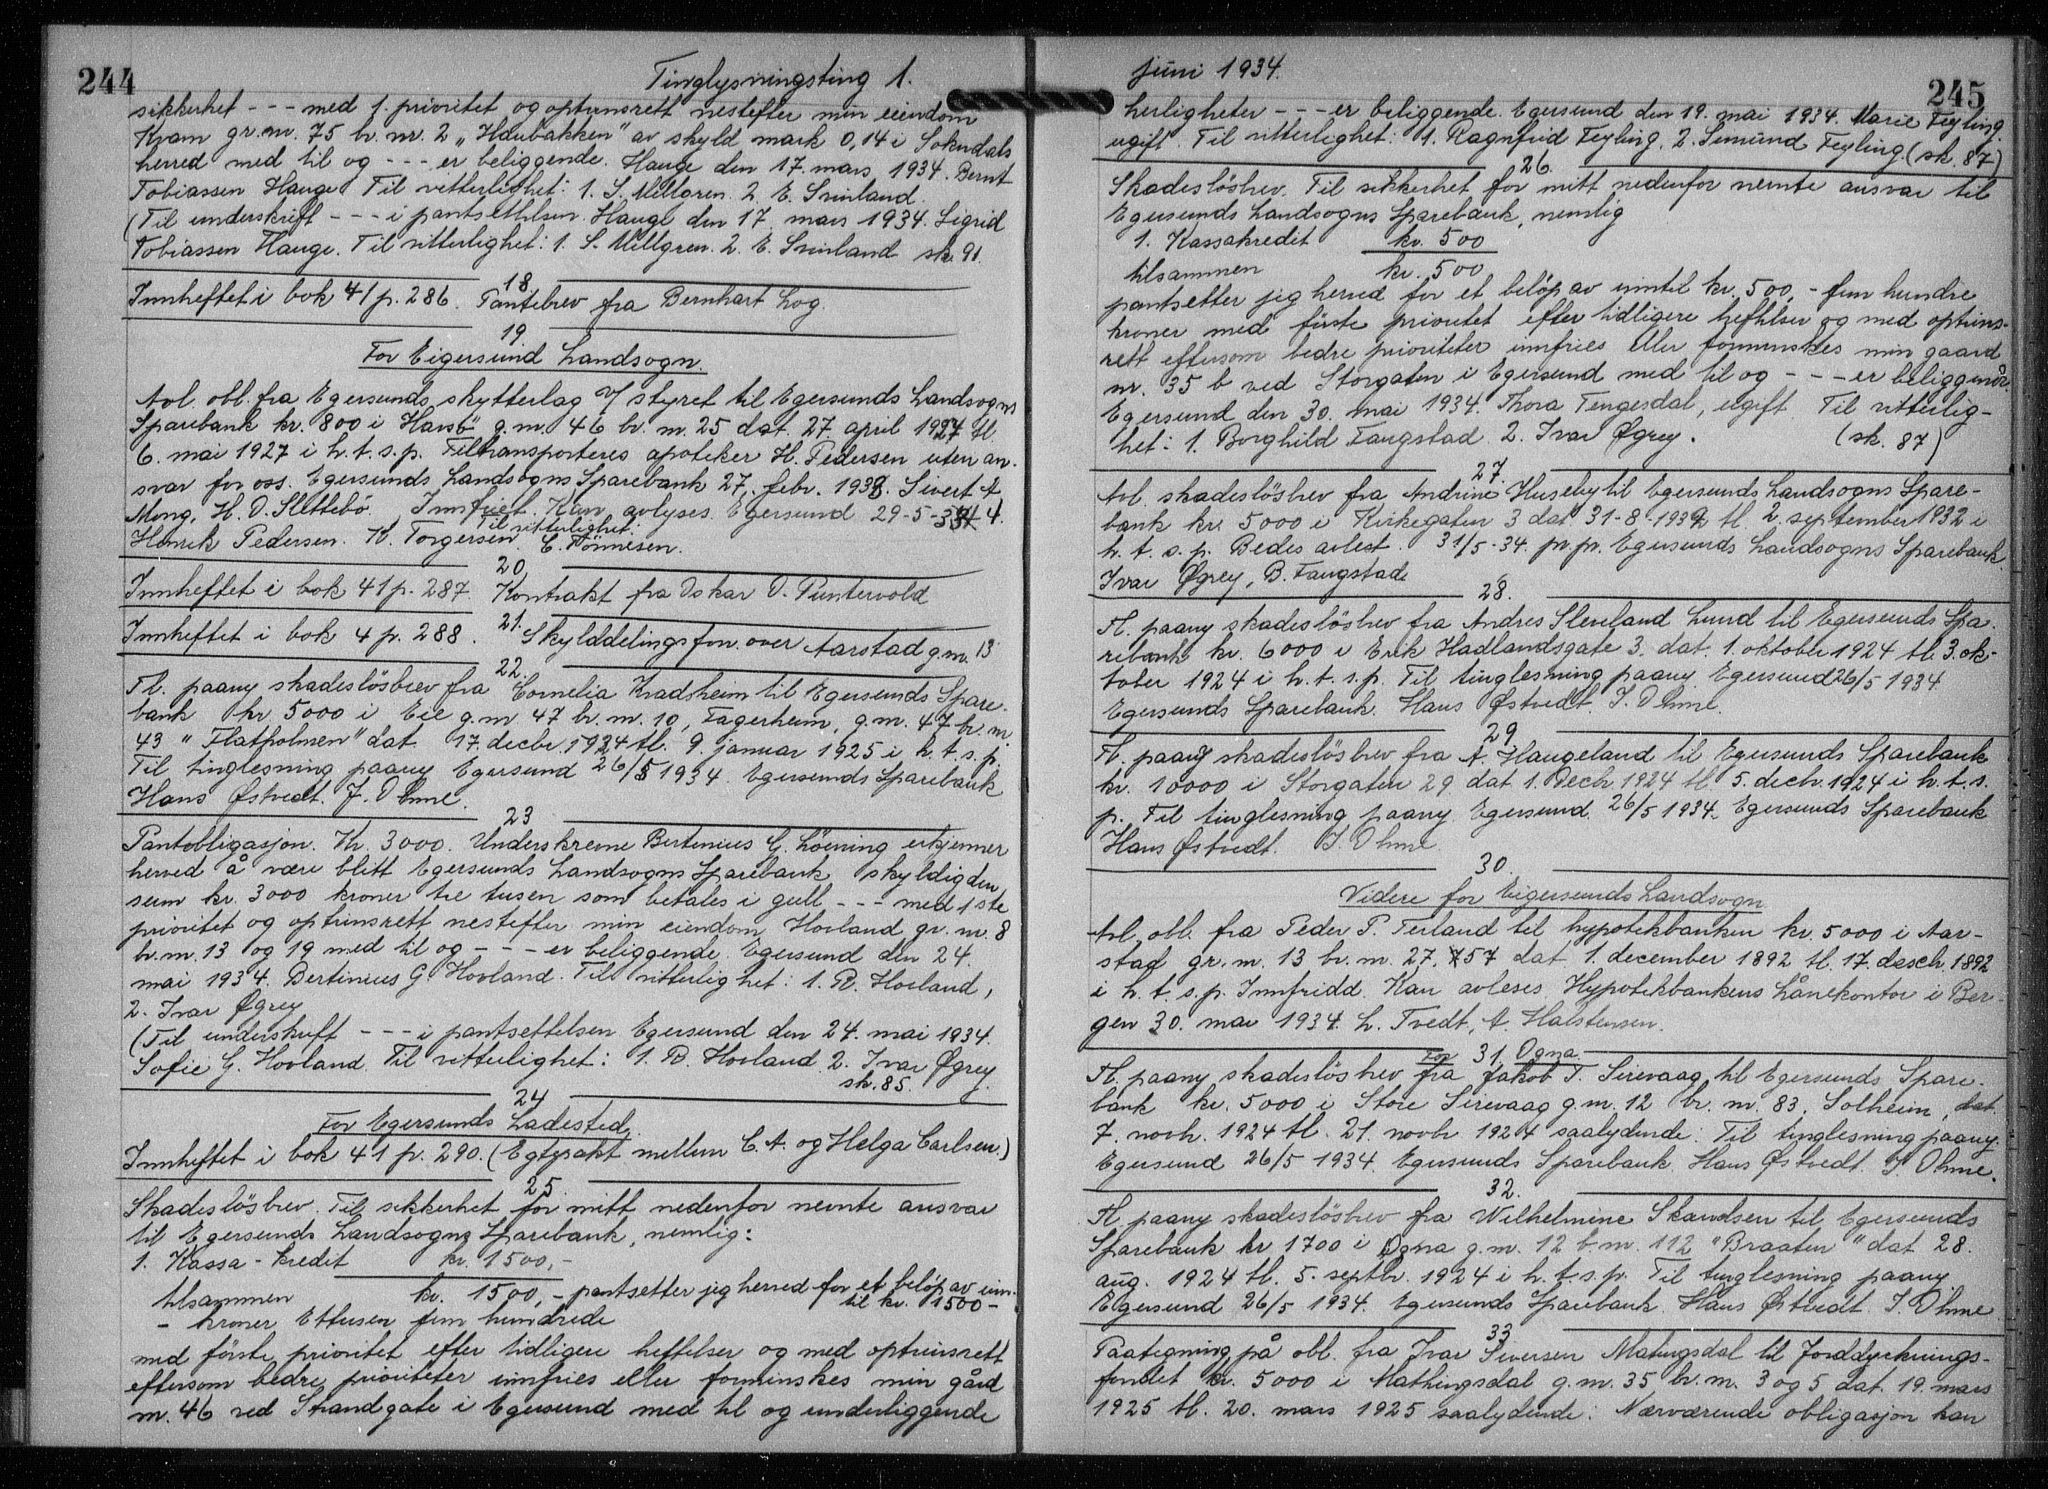 244
Tinglysningsting 1.
sikkerhet --- med 1. prioritet og optrinsrett nestefter min eiendom
Kvam gr. nr. 75 br. nr. 2 „Haubakken" av skyld mark 0,14 i Sokndals
herred med til og --- er beliggende. Hauge den 17. mars 1934. Bernt
Tobiassen Hauge. Til vitterlighet: 1. S. Millgren. 2. E. Svinland.
(Til underskrift --- i pantsettelsen. Hauge den 17. mars 1934. Sigrid
Tobiassen Hauge. Til vitterlighet: 1. S. Millgren. 2. E. Svinland sk. 91.
18.
Innheftet i bok 41 p. 286. Pantebrev fra Bernhart Log.
19.
For Eigersund Landsogn.
Avl. obl. fra Egersunds skytterlag v/ styret til Egersunds Landsogns
Sparebank kr. 800 i Havsö" g. nr. 46 br. nr. 25 dat. 27. april 1927 tl.
6. mai 1927 i h. t. s. p. Tiltransporteres apoteker H. Pedersen uten an-
svar for oss. Egersunds Landsogns Sparebank 27. febr. 1933. Sivert A
Mong, H. O. Slettebö. Innfriet. Kan avlyses. Egersund 29-5-34.
Til vitterlighet:
Henrik Pedersen. K. Torgersen. C. Tönnesen.
20.
Innheftet i bok 41 p. 287. Kontrakt fra Oskar O. Puntervold
21.
Innheftet i bok 4 p. 288. Skylddelingsforr. over Aarstad g. nr. 13
22.
Tl. paany skadeslösbrev fra Cornelia Kradheim til Egersunds Spare-
bank kr 5000 i Eie g. nr 47 br. nr. 10, Fagerheim, g. nr. 47 br. nr
43 "Flatholmen" dat. 17. decbr. 1924 tl. 9. januar 1925 i h. t. s. p.
Til tinglesning paany Egersund 26/5 1934. Egersunds Sparebank
Hans Østvedt. J. Ohme.
23
Pantobligasjon. Kr. 3000. Underskrevne Bertinius G. Löining erkjenner
herved å være blitt Egersunds Landsogns Sparebank skyldig den
sum kr. 3000 kroner tre tusen som betales i gull --- med 1ste
prioritet og optrinsrett nestefter min eiendom Hovland gr. nr. 8
br. nr. 13 og 19 med til og --- er beliggende. Egersund den 24.
mai 1934. Bertinius G. Hovland. Til vitterlighet: 1. B. Hovland,
2. Ivar Øgrey
(Til underskrift --- i pantsettelsen Egersund den 24. mai 1934.
Sofie G. Hovland. Til vitterlighet: 1. B. Hovland 2. Ivar Øgrey.
sk. 85.
24
For Egersunds Ladested.
Innheftet i bok 41 p. 290. (Egtepakt mellem C. A. og Helga Carlsen.)
25.
Skadeslösbrev. Til sikkerhet for mitt nedenfor nevnte ansvar
til Egersunds Landsogns Sparebank, nemlig:
1. Kassa-kredit kr. 1500,-
tilsammen kr. 1500,- pantsetter jeg herved for et beløp av inn-
til kr. 1500-
- kroner Ettusen fem hundrede
med förste prioritet efter tidligere heftelser og med optrinsrett
eftersom bedre prioriteter innfries eller forminskes min gård
nr. 46 ved Strandgate i Egersund med til og underliggende
juni 1934.
245
herligheter --- er beliggende. Egersund den 19. mai 1934. Marie Feyling
ugift. Til vitterlighet: 1. Ragnfrid Feyling. 2. Simund Feyling. (sk. 87)
26.
Skadeslösbrev. Til sikkerhet for mitt nedenfor nevnte ansvar til
Egersunds Landsogns Sparebank, nemlig
1. Kassakredit kr. 500
tilsammen kr. 500
pantsetter jeg herved for et beløp av inntil kr. 500,- fem hundre
kroner med förste prioritet efter tidligere heftelser og med optrins-
rett eftersom bedre prioriteter innfries eller forminskes min gaard
nr. 35 b ved Storgaten i Egersund med til og --- er beliggende.
Egersund den 30. mai 1934. Thora Tengesdal, ugift Til vitterlig-
het: 1. Borghild Faugstad. 2. Ivar Øgrey. (sk. 87)
27.
Avl. skadeslösbrev fra Andrine Huseby til Egersunds Landsogns Spare-
bank kr. 5000 i Kirkegaten 3 dat 31-8-1932 tl. 2. september 1932 i
h. t. s. p. Bedes avlest. 31/5-34. pr. pr. Egersunds Landsogns Sparebank
Ivar Øgrey, B. Faugstad
28.
Tl. paany skadeslösbrev fra Andres Sleveland Lund til Egersunds Spa-
rebank kr. 6000 i Erik Hadlandsgate 3. dat. 1. oktober 1924 tl. 3. ok-
tober 1924 i h. t. s. p. Til tinglesning paany Egersund 26/5 1934
Egersunds Sparebank. Hans Østvedt. J. Ohme.
29
Tl. paany skadeslösbrev fra A. Haugeland til Egersunds Sparebank
kr. 10000 i Storgaten 29 dat 1. Decbr. 1924 tl. 5. decbr. 1924 i h. t. s.
p. Til tinglesning paany Egersund 26/5 1934. Egersunds Sparebank
Hans Østvedt. J. Ohme
30.
Videre for Eigersunds Landsogn
Avl. obl. fra Peder P. Terland til hypotekbanken kr. 5000 i Aar-
stad gr. nr. 13 br. nr. 27. 57 dat 1. december 1892 tl. 17. desch. 1892
i h. t. s. p. Innfridd. Kan avleses Hypotekbankens Lånekontor i Ber-
gen 30. mai 1934. L. Tvedt, A. Halstensen.
For 31. Ogna.
Tl. paany skadeslösbrev fra Jakob T. Sirevaag til Egersunds Spare-
bank kr. 5000 i Store Sirevaag g. nr. 12 br. nr. 83, Solheim, dat.
7. novb. 1924 tl. 21. novbr 1924 saalydende: Til tinglesning paany.
Egersund 26/5 1934. Egersunds Sparebank. Hans Østvedt. J. Ohme.
32.
Tl. paany skadeslösbrev fra Wilhelmine Skandsen til Egersunds
Sparebank kr 1700 i Ogna g. nr. 12 br. nr. 112 "Braaten" dat 28.
aug. 1924 tl. 5. septbr. 1924 i h. t. s. p. Til tinglesning paany
Egersund 26/5 1934. Egersunds Sparebank. Hans Østvedt. J. Ohme
33
Paategning på obl. fra Ivar Siversen Matingsdal til Jorddyrknings-
fondet kr. 5000 i Mathingsdal g. nr. 35 br. nr. 3 og 5 dat. 19. mars
1925 tl. 20. mars 1925 saalydende: Nærværende obligasjon kan